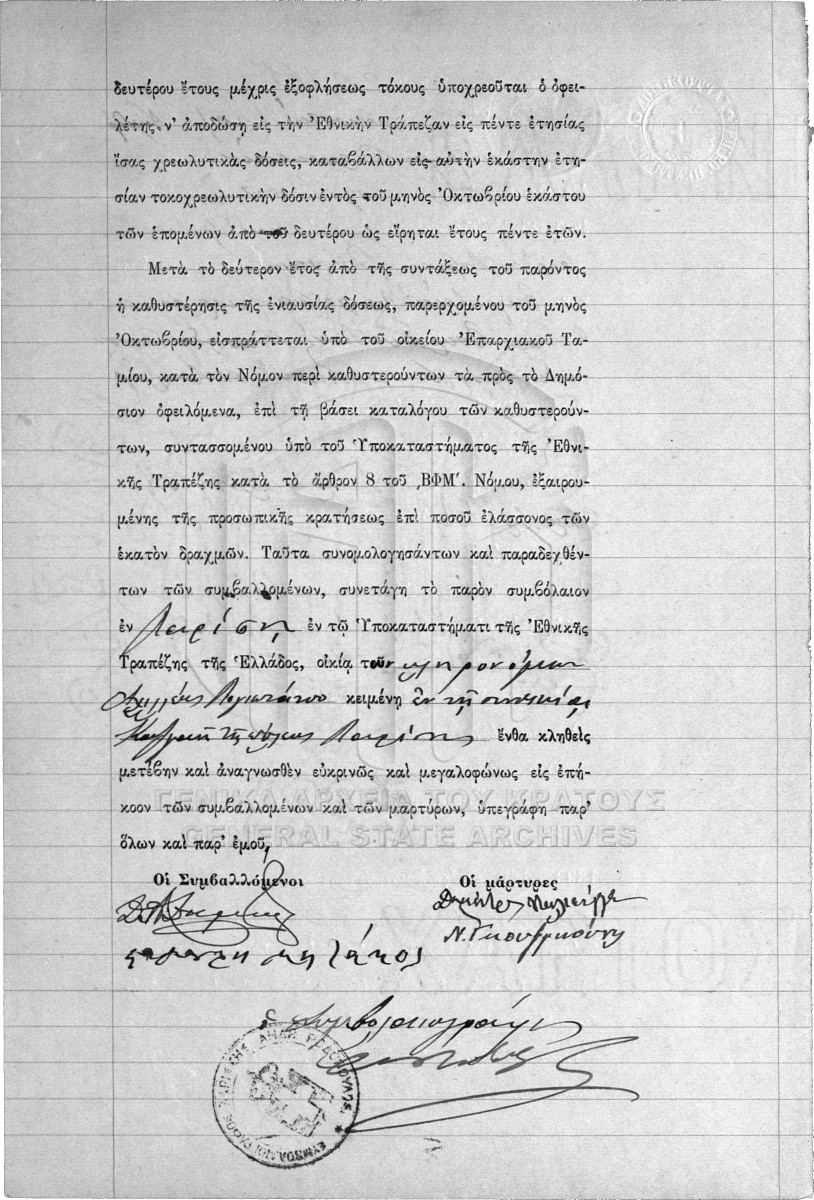 δευτέρου ἔτους μέχρις ἐξοφλήσεως τόκους ὑποχρεοῦται ὁ ὀφει-
λέτης ν' ἀποδώσῃ εἰς τὴν Ἐθνικὴν Τράπεζαν εἰς πέντε ἐτησίας
ἴσας χρεωλυτικὰς δόσεις, καταβάλλων εἰς αὐτὴν ἑκάστην ἐτη-
σίαν τοκοχρεωλυτικὴν δόσιν ἐντὸς τοῦ μηνὸς Ὀκτωβρίου ἑκάστου
τῶν ἑπομένων ἀπὸ τοῦ δευτέρου ὡς εἴρηται ἔτους πέντε ἐτῶν.
Μετὰ τὸ δεύτερον ἔτος ἀπὸ τῆς συντάξεως τοῦ παρόντος
ἡ καθυστέρησις τῆς ἐνιαυσίας δόσεως, παρερχομένου τοῦ μηνὸς
Ὀκτωβρίου, εἰσπράττεται ὑπὸ τοῦ οἰκείου Ἐπαρχιακοῦ Τα-
μίου, κατὰ τὸν Νόμον περὶ καθυστερούντων τὰ πρὸς τὸ Δημό-
σιον ὀφειλόμενα, ἐπὶ τῇ βάσει καταλόγου τῶν καθυστερούν-
των, συντασσομένου ὑπὸ τοῦ Ὑποκαταστήματος τῆς Ἐθνι-
κῆς Τραπέζης κατὰ τὸ ἄρθρον 8 τοῦ ͵ΒΦΜ΄. Νόμου, ἐξαιρου-
μένης τῆς προσωπικῆς κρατήσεως ἐπὶ ποσοῦ ἐλάσσονος τῶν
ἑκατὸν δραχμῶν. Ταῦτα συνομολογησάντων καὶ παραδεχθέν-
των τῶν συμβαλλομένων, συνετάγη τὸ παρὸν συμβόλαιον
ἐν Λαρίσῃ ἐν τῷ Ὑποκαταστήματι τῆς Ἐθνικῆς
Τραπέζης τῆς Ἑλλάδος, οἰκίᾳ τῶν κληρονόμων
κειμένῃ ἐν τῇ συνοικίᾳ
τῆς πόλεως Λαρίσης ἔνθα κληθεὶς
μετέβην καὶ ἀναγνωσθὲν εὐκρινῶς καὶ μεγαλοφώνως εἰς ἐπή-
κοον τῶν συμβαλλομένων καὶ τῶν μαρτύρων, ὑπεγράφη παρ'
ὅλων καὶ παρ' ἐμοῦ,
ΓΕΝΙΚΑ ΑΡΧΕΙΑ ΤΟΥ ΚΡΑΤΟΥΣ
GENERAL STATE ARCHIVES
Οἱ Συμβαλλόμενοι Οἱ μάρτυρες
ὁ Συμβολαιογράφος